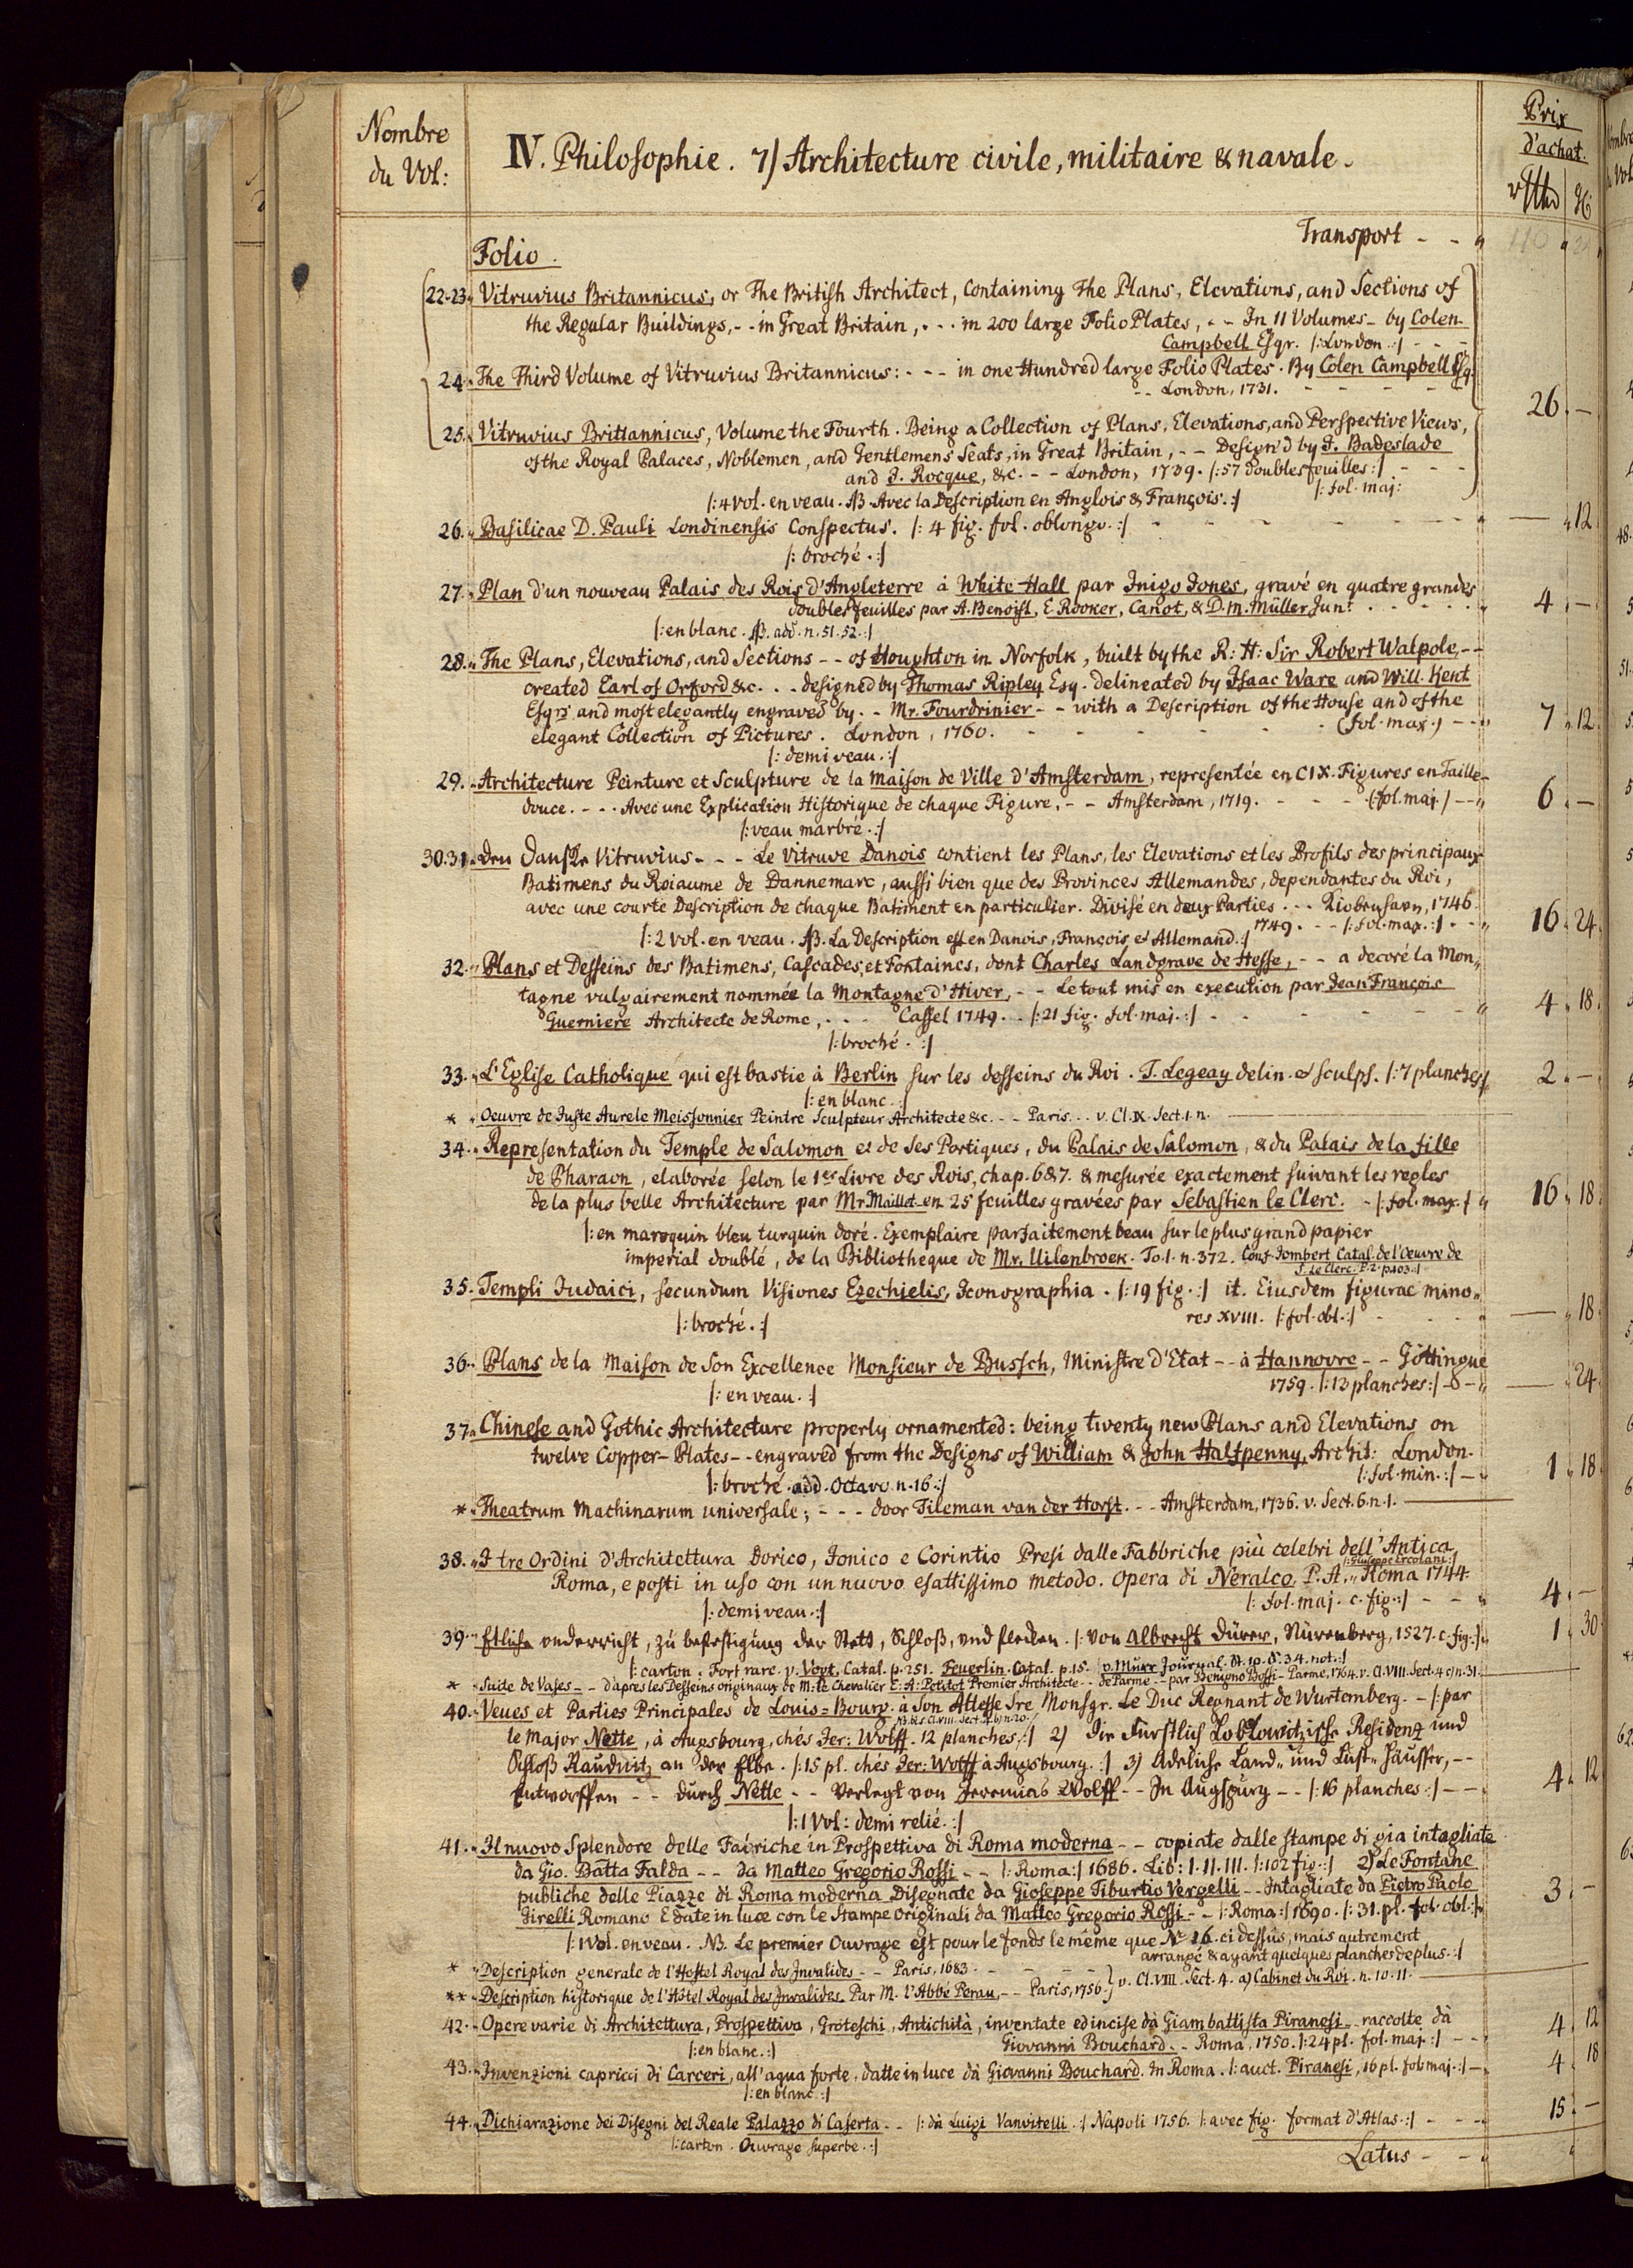 Nombre
du Vol:
IV. Philosophie. 7) Architecture civile, militaire & navale.
Prix
d'achat.
Transport - - "
Folio.
22-23. Vitruvius Britannicus, or The British Architect, Containing The Plans, Elevations, and Sections of
the Regular Buildings, - - in Great Britain, - - - in 200 large Folio Plates, - - In II Volumes - by Colen
Campbell Esqr. |: London :| - - -
24. The Third Volume of Vitruvius Britannicus: - - - in one Hundred large Folio Plates. By Colen Campbell Esq.
- - London, 1731. - - - - 26. -
25. Vitruvius Brittannicus, Volume the Fourth. Being a Collection of Plans, Elevations, and Perspective Views,
of the Royal Palaces, Noblemen, and Gentlemens Seats, in Great Britain, - - Design'd by J. Badeslade
and J. Rocque, &c. - - London, 1739. |: 57 doubles feuilles :| - - -
|: fol. maj:
|: 4 vol. en veau. NB. Avec la Description en Anglois & François. :|
26. Basilicae D. Pauli Londinensis Conspectus. |: 4 fig. fol. oblongo. :| - - - - - - - — " 12.
|: broché. :|
27. Plan d'un nouveau Palais des Rois d'Angleterre à White-Hall par Inigo Jones, gravé en quatre grandes
doubles feuilles par A. Benoist, E. Rooker, Canot, & D. M. Müller Jun. - - - - - 4. -
|: en blanc. NB. add. n. 51. 52. :|
28. The Plans, Elevations, and Sections - - of Houghton in Norfolk, built by the R: H: Sir Robert Walpole, - -
created Earl of Orford &c. - - - designed by Thomas Ripley Esq. delineated by Isaac Ware and Will. Kent
Esqrs and most elegantly engraved by - - Mr. Fourdrinier - - with a Description of the House and of the
elegant Collection of Pictures. London, 1760. - - - - - (fol. max.) - - " 7 " 12.
|: demi veau. :|
29. Architecture Peinture et Sculpture de la Maison de Ville d'Amsterdam, representée en CIX. Figures en Taille-
douce. - - - Avec une Explication Historique de chaque Figure, - - Amsterdam, 1719. - - - (fol. maj.) - - " 6. -
|: veau marbré. :|
30.31. Den Danske Vitruvius - - - Le Vitruve Danois contient les Plans, les Elevations et les Profils des principaux
Batimens du Roiaume de Dannemarc, aussi bien que des Provinces Allemandes, dependantes du Roi,
avec une courte Description de chaque Batiment en particulier. Divisé en deux Parties - - - Kiobenhavn, 1746.
1749. - - |: fol. max. :| - - " 16 " 24.
|: 2 vol. en veau. NB. La Description est en Danois, François, et Allemand. :|
32. Plans et Desseins des Batimens, Cascades, et Fontaines, dont Charles Landgrave de Hesse, - - a decoré la Mon"
tagne vulgairement nommée la Montagne d'Hiver, - - Le tout mis en execution par Jean François
Guerniere Architecte de Rome, - - - Cassel 1749. - |: 21 fig. fol. maj. :| - - - - - " 4 " 18.
|: broché. :|
33. L'Eglise Catholique qui est bastie à Berlin sur les desseins du Roi. J. Legeay delin. et sculps. |: 7 planches :| 2. -
|: en blanc. :|
* Oeuvre de Juste Aurele Meissonnier Peintre Sculpteur Architecte &c. - - Paris. . . v. Cl. IX. Sect. 1. n.
34. Representation du Temple de Salomon et de ses Portiques, du Palais de Salomon, & du Palais de la fille
de Pharaon, elaborée selon le 1er Livre des Rois, chap. 6 & 7. & mesurée exactement suivant les regles
de la plus belle Architecture par Mr Maillet en 25 feuilles gravées par Sebastien le Clerc. - |: fol. max. :| " 16 " 18.
|: en maroquin bleu turquin doré. Exemplaire parfaitement beau sur le plus grand papier
imperial doublé, de la Bibliotheque de Mr. Uilenbroek. To. 1. n. 372. Conf. Jombert Catal. de l'Oeuvre de
S. Le Clerc. P. 2. p. 103. :|
35. Templi Judaici, secundum Visiones Ezechielis, Iconographia. |: 19 fig. :| it. Eiusdem figurae mino"
res XVIII. |: fol. obl. :| - - - - — " 18.
|: broché. :|
36. Plans de la Maison de Son Excellence Monsieur de Bussch, Ministre d'Etat - - à Hannovre - - Göttingue
1759. |: 13 planches :| - - " — " 24.
|: en veau. :|
37. Chinese and Gothic Architecture properly ornamented: being twenty new Plans and Elevations on
twelve Copper-Plates - - engraved from the Designs of William & John Halfpenny, Archit: London.
|: fol. min. :| - " 1 " 18.
|: broché. add. Octavo. n. 16. :|
* Theatrum Machinarum universale; - - - door Tileman van der Horst. - - Amsterdam, 1736. v. Sect. 6. n. 1.
38. I tre Ordini d'Architettura Dorico, Jonico e Corintio Presi dalle Fabbriche più celebri dell'Antica
|: Giuseppe Ercolani :|
Roma, e posti in uso con un nuovo esattissimo metodo. Opera di Neralco P. A. " Roma 1744.
|: fol. maj. c. fig. :| - - " 4. -
|: demi veau. :|
39. Etliche underricht, zu befestigung der Stett, Schloß, und flecken. |: von Albrecht Dürer, Nürenberg, 1527. c. fig. :| " 1 " 30.
|: carton. Fort rare. v. Vogt. Catal. p. 251. Feuerlin. Catal. p. 15. v. Murr Journal. St. 10. S. 34. not. :|
* Suite de Vases - - d'apres les Desseins originaux de M. le Chevalier E. A. Petitot Premier Architecte - - de Parme. - - par Benigno Bossi - Parme, 1764. v. Cl. VIII. Sect. 4 c) n. 31.
40. Veues et Parties Principales de Louis=Bourg. à Son Altesse Sre Monsgr. Le Duc Regnant de Wurtemberg. - |: par
le Major Nette, à Augsbourg, chés Jer: Wolff. 12 planches, :| 2) Die Fürstlich Lobkowitzische Residenz und
Schloß Raudnitz an der Elbe. |: 15 pl. chés Jer: Wolff à Augsbourg. :| 3) Adeliche Land" und Lust" Häusser, - -
Entworffen - - durch Nette - - Verlegt von Jeremias Wolff - - In Augspurg - - |: 16 planches :| - - - 4. 12
|: 1 Vol: demi relié. :|
41. Il nuovo Splendore delle Fabriche in Prospettiva di Roma moderna - - copiate dalle stampe di gia intagliate
da Gio. Batta Falda - - da Matteo Gregorio Rossi - - |: Roma :| 1686. Lib: I. II. III. |: 102 fig. :| 2) Le Fontane
publiche delle Piazze di Roma moderna Disegnate da Gioseppe Tiburtio Vergelli - - Intagliate da Pietro Paolo
Girelli Romano E date in luce con le Stampe originali da Matteo Gregorio Rossi - - |: Roma :| 1690. |: 31. pl. fol. obl. :| " 3. -
|: 1 Vol. en veau. NB. Le premier Ouvrage est pour le fonds le même que No 16. ci dessus, mais autrement
arrangé & ayant quelques planches de plus. :|
* Description generale de l'Hostel Royal des Invalides - - Paris, 1683. - - - - -
** Description historique de l'Hôtel Royal des Invalides. Par M. l'Abbé Perau, - - Paris, 1756. } v. Cl. VIII. Sect. 4. a) Cabinet du Roi. n. 10. 11.
42. Opere varie di Architettura, Prospettiva, Groteschi, Antichità, inventate ed incise dà Giambattista Piranesi - - raccolte dà 4. 12
Giovanni Bouchard. - - Roma, 1750. |: 24 pl. fol. maj. :| - - -
|: en blanc. :|
43. Invenzioni capricci di Carceri, all'aqua forte, datte in luce dà Giovanni Bouchard. In Roma. |: auct. Piranesi, 16 pl. fol. maj. :| - 4. 18
|: en blanc :|
44. Dichiarazione dei Disegni del Reale Palazzo di Caserta - - |: dà Luigi Vanvitelli :| Napoli 1756. |: avec fig. format d'Atlas. :| - - - 15. -
|: carton. Ouvrage superbe. :|
Latus - - "